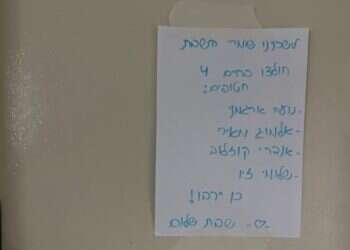 לשכנינו שומרי השבת
חולצו בחיים 4
חטופים:
- נועה ארגמני
- אלמוג מאיר
- אנדרי קוזלוב
- שלומי זיו
כן ירבו!
-♡- שבת שלום